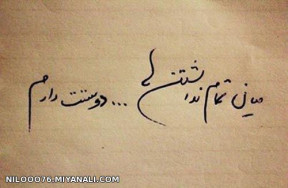 میان تمام نداشتن ها
دوستت دارم ...
NILOOO76.MIYANALI.COM